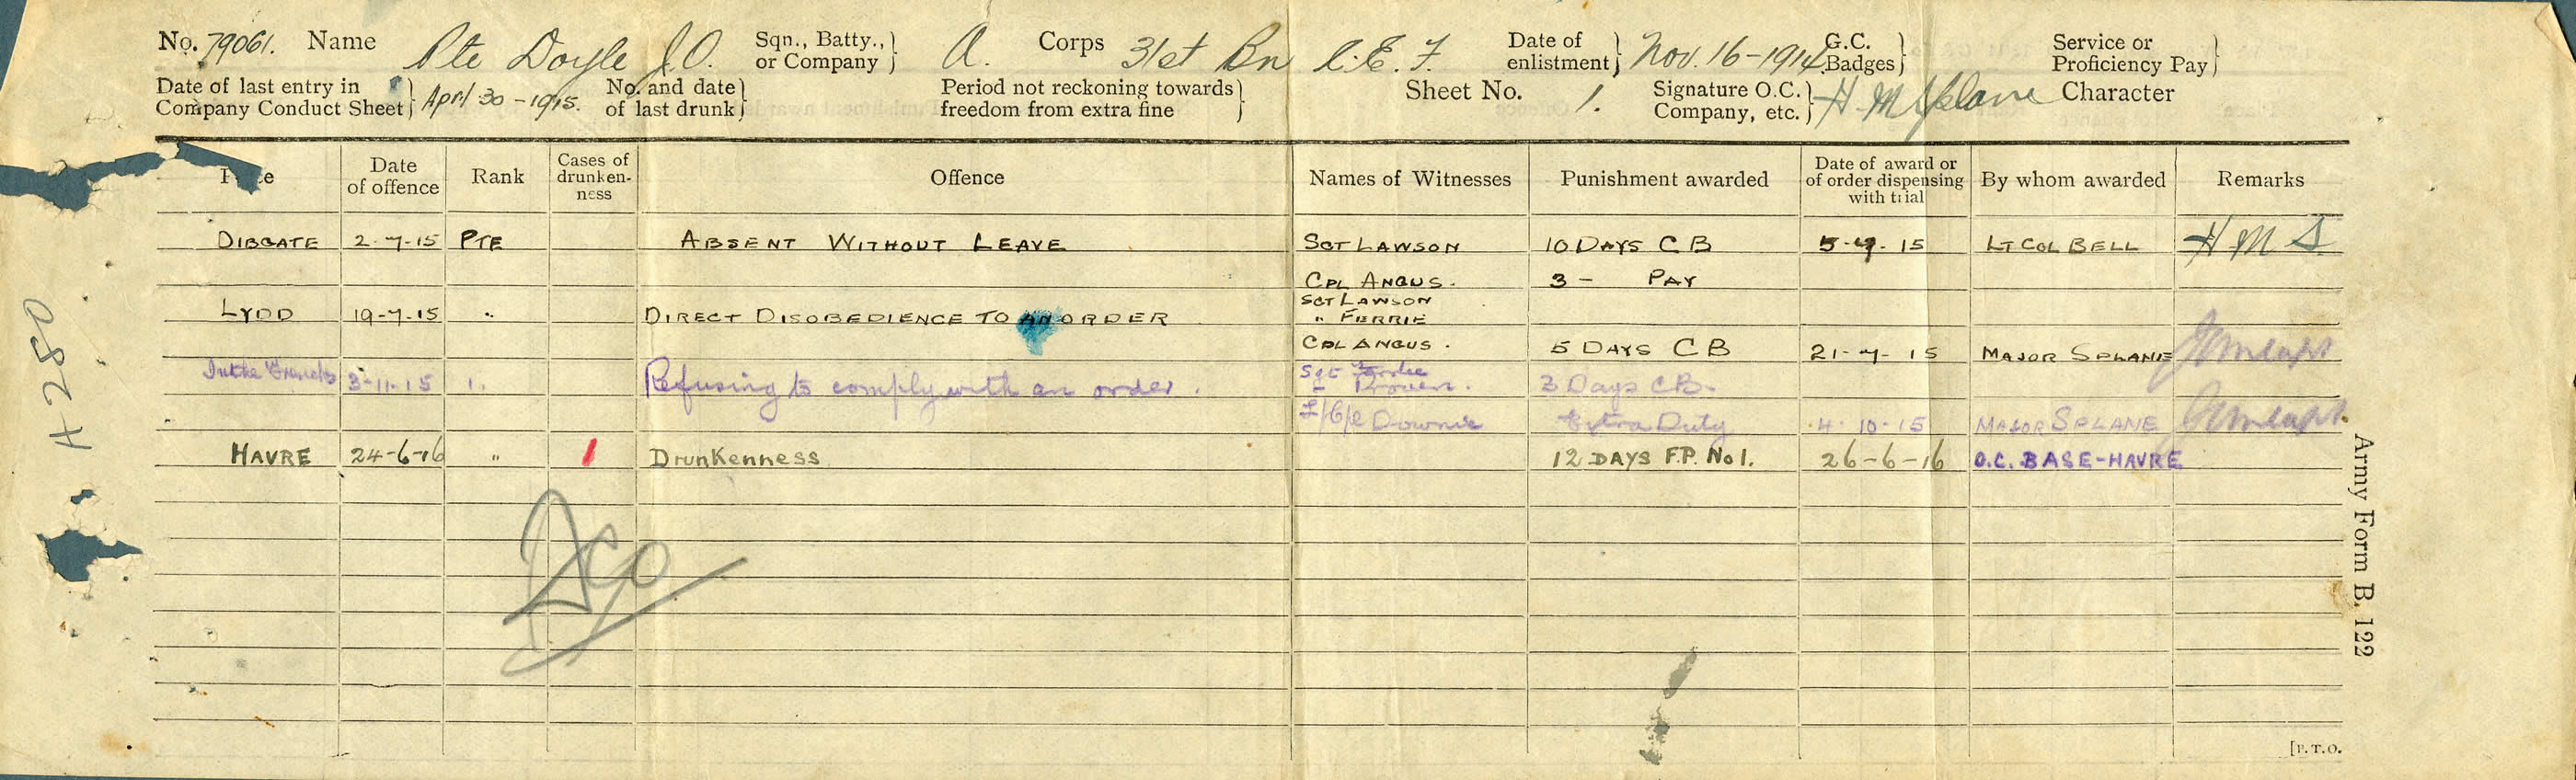 No. 79061. Name Pte Doyle J.O. Sqn., Batty., or Company } A. Corps 31st Bn C.E.F. Date of enlistment } Nov. 16-1914 G.C. Badges } Service or Proficiency Pay }
Date of last entry in Company Conduct Sheet } April 30-1915. No. and date of last drunk } Period not reckoning towards freedom from extra fine } Sheet No. 1. Signature O.C. Company, etc. } H M Splane Character
Date of offence Rank Cases of drunken-ness Offence Names of Witnesses Punishment awarded Date of award or of order dispensing with trial By whom awarded Remarks
DIBGATE 2-7-15 PTE ABSENT WITHOUT LEAVE SGT LAWSON 10 DAYS C B 5-7-15 LT COL BELL H M S
CPL ANGUS. 3 - PAY
SGT LAWSON
LYDD 19-7-15 " DIRECT DISOBEDIENCE TO AN ORDER " FERRIE
CPL ANGUS. 5 DAYS C B 21-7-15 MAJOR SPLANE
In the Trenches 3-11-15 " Refusing to comply with an order. Sgt Ferrie
" 3 Days CB.
L/Cpl Downie Extra Duty 4-10-15 MAJOR SPLANE
HAVRE 24-6-16 " 1 Drunkenness 12 DAYS F.P. No 1. 26-6-16 O.C. BASE-HAVRE
A 280
Army Form B. 122
[P.T.O.